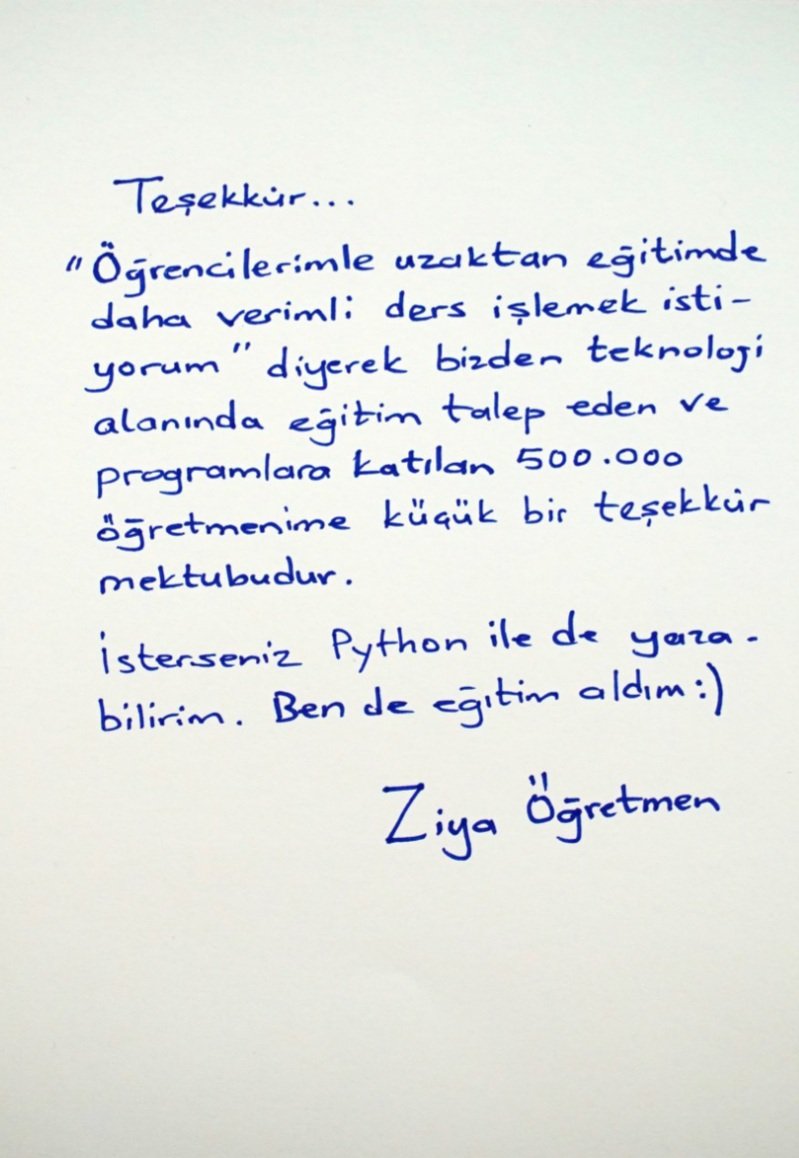 Teşekkür...
"Öğrencilerimle uzaktan eğitimde
daha verimli ders işlemek isti-
yorum" diyerek bizden teknoloji
alanında eğitim talep eden ve
programlara katılan 500.000
öğretmenime küçük bir teşekkür
mektubudur.
İsterseniz Python ile de yaza-
bilirim. Ben de eğitim aldım:)
Ziya Öğretmen